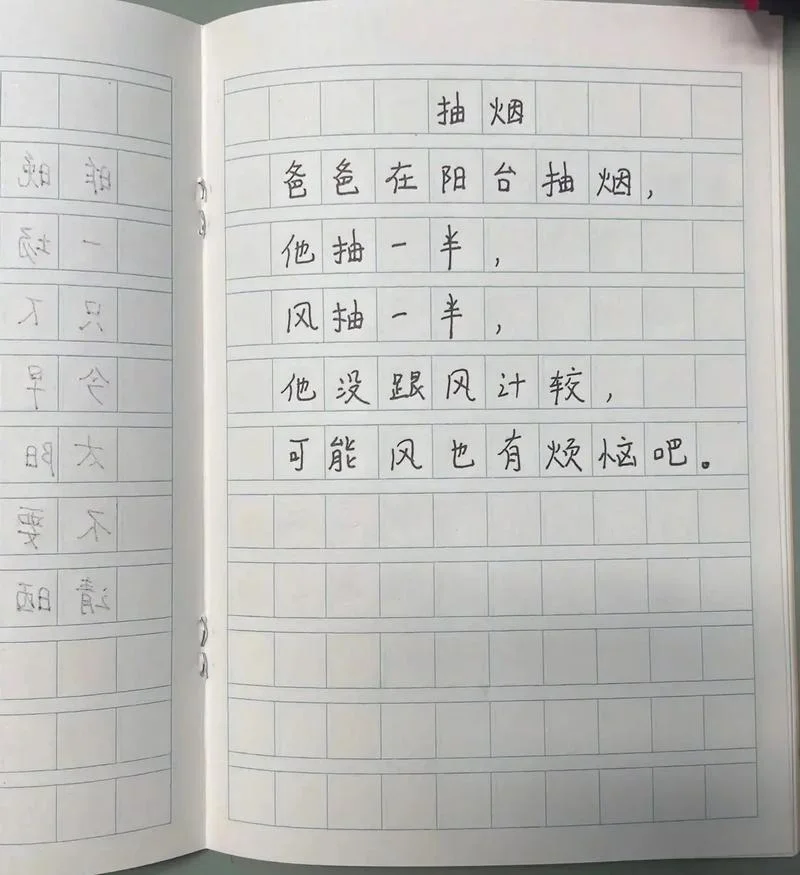 抽烟
爸爸在阳台抽烟，
他抽一半，
风抽一半，
他没跟风计较，
可能风也有烦恼吧。
昨晚
一场
只下
今早
太阳
不要
请晒